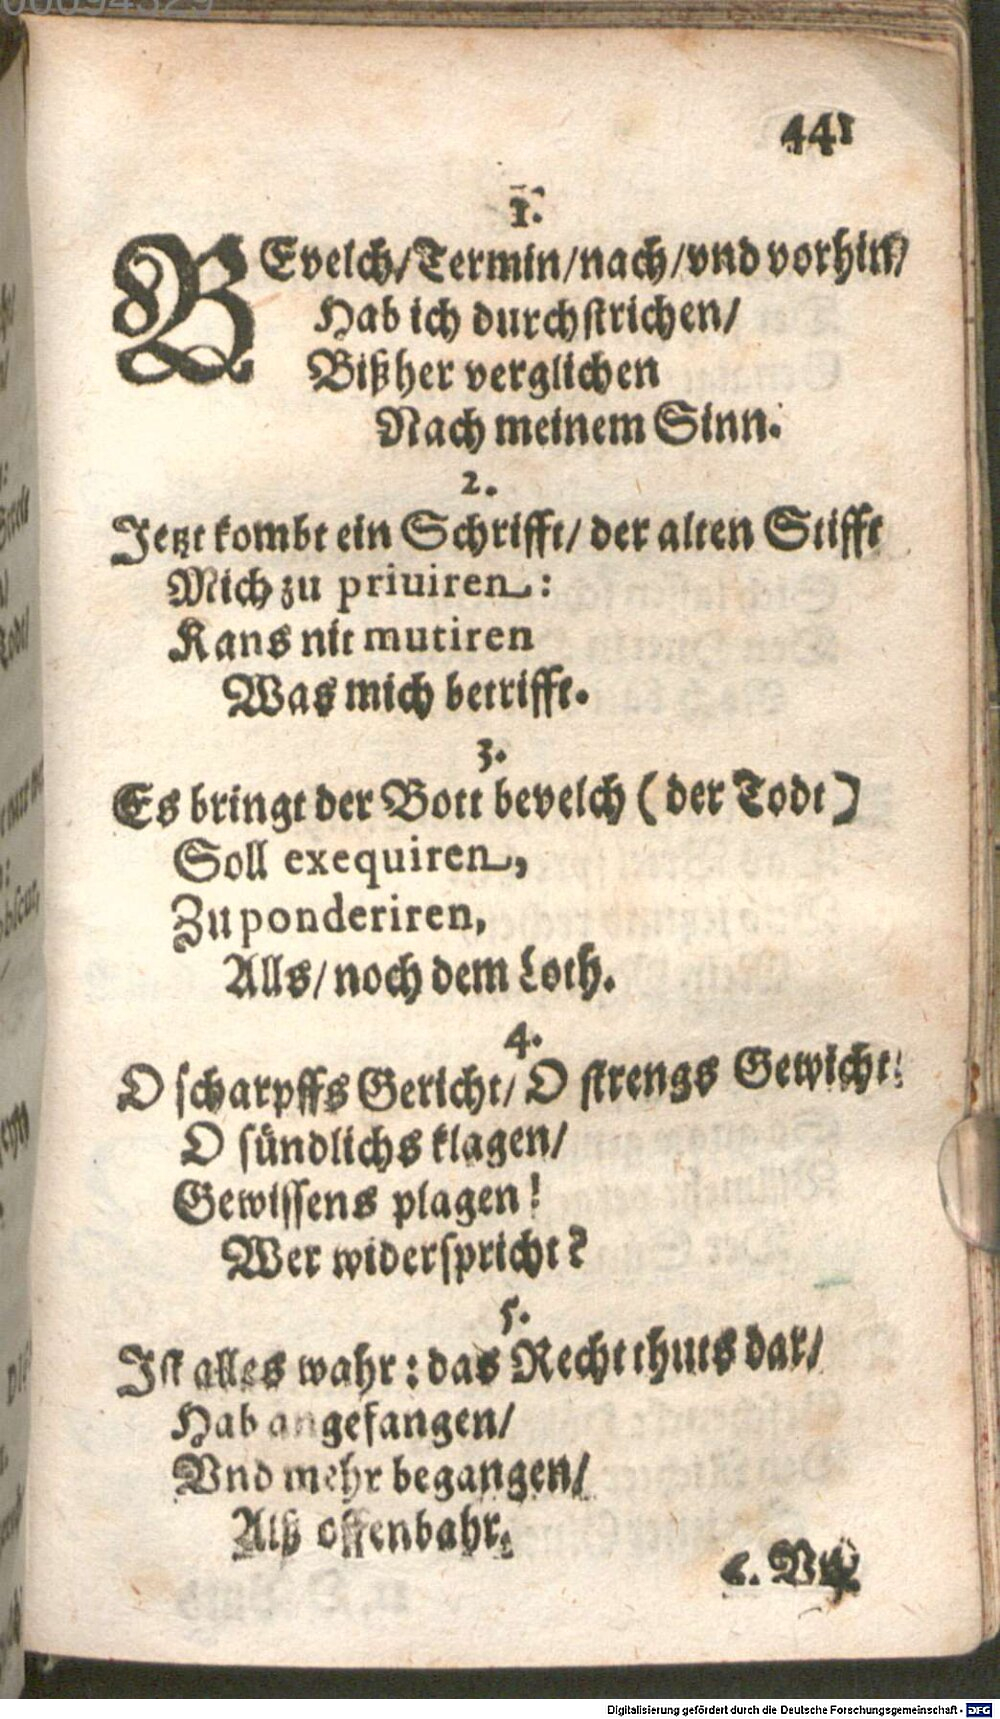 441
1.
BEvelch/Termin/nach/vnd vorhin/
Hab ich durchstrichen/
Bißher verglichen
Nach meinem Sinn.
2.
Jetzt kombt ein Schrifft/ der alten Stifft
Mich zu priuiren:
Kans nit mutiren
Was mich betrifft.
3.
Es bringt der Bott bevelch (der Todt)
Soll exequiren,
Zu ponderiren,
Alls/noch dem Loth.
4.
O scharpffs Gericht/ O strengs Gewicht!
O sündlichs klagen/
Gewissens plagen!
Wer widerspricht?
5.
Ist alles wahr: das Recht thuts dar/
Hab angefangen/
Vnd mehr begangen/
Alß offenbahr.
6.
Digitalisierung gefördert durch die Deutsche Forschungsgemeinschaft - DFG